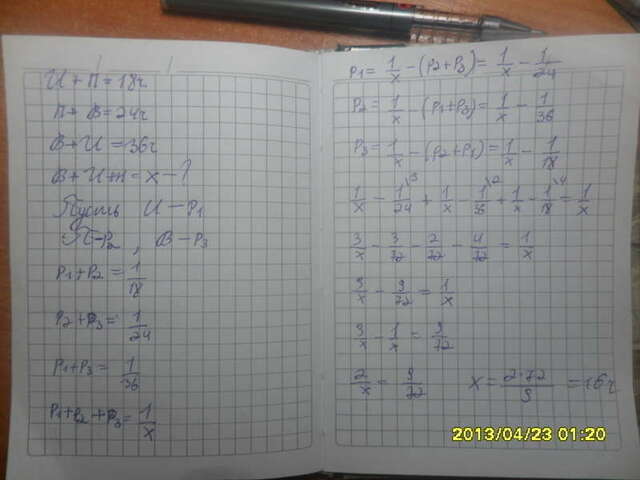 И + П = 18ч
П + В = 24ч
В + И = 36ч
В + И + П = x - ?
Пусть И - P₁
П - P₂, В - P₃
P₁ + P₂ = 1/18
P₂ + P₃ = 1/24
P₁ + P₃ = 1/36
P₁ + P₂ + P₃ = 1/x
P₁ = 1/x - (P₂ + P₃) = 1/x - 1/24
P₂ = 1/x - (P₁ + P₃) = 1/x - 1/36
P₃ = 1/x - (P₂ + P₁) = 1/x - 1/18
1/x - 1/24 \3 + 1/x - 1/36 \2 + 1/x - 1/18 \4 = 1/x
3/x - 3/72 - 2/72 - 4/72 = 1/x
3/x - 9/72 = 1/x
3/x - 1/x = 9/72
2/x = 9/72 x = 2·72/9 = 16ч
2013/04/23 01:20